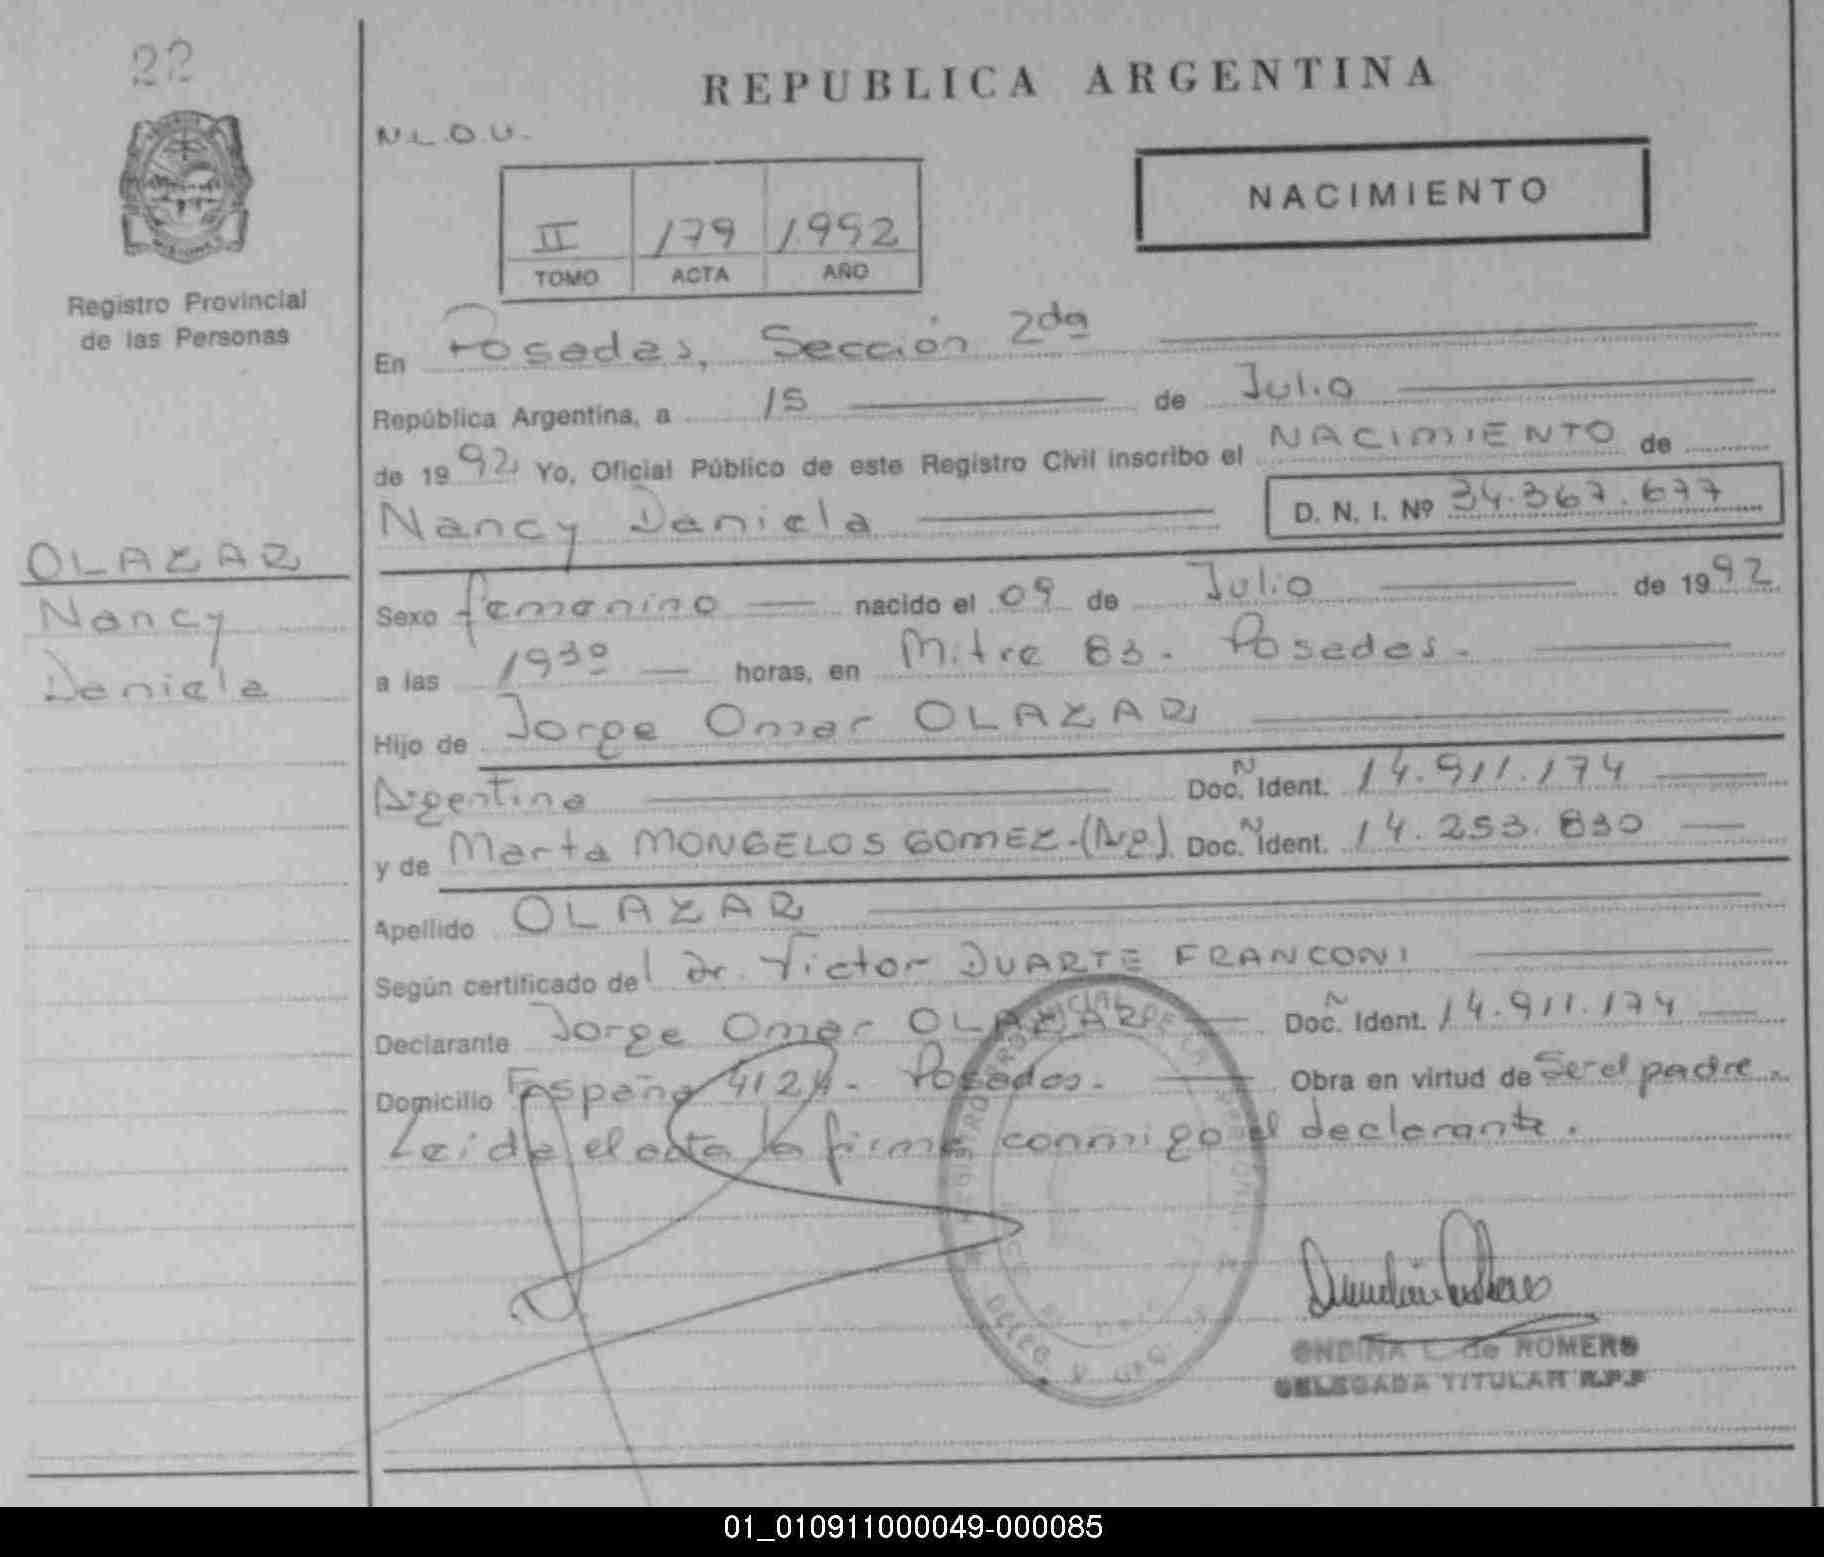 22
REPUBLICA ARGENTINA
N.L.O.U.
NACIMIENTO
II 179 1992
TOMO ACTA AÑO
Registro Provincial
de las Personas
En Posadas, Sección 2da
República Argentina, a 15 de Julio
de 1992 Yo, Oficial Público de este Registro Civil inscribo el NACIMIENTO de
Nancy Daniela D. N. I. Nº 34.367.677
OLAZAR
Nancy
Daniela
Sexo femenino nacido el 09 de Julio de 1992
a las 1930 horas, en Mitre 83. Posadas.
Hijo de Jorge Omar OLAZAR
Argentina Doc. N Ident. 14.911.174
y de Marta MONGELOS GOMEZ.(Arg). Doc. N Ident. 14.253.830
Apellido OLAZAR
Según certificado del Dr. Victor DUARTE FRANCONI
Declarante Jorge Omar OLAZAR Doc. N Ident. 14.911.174
Domicilio España 4124. Posadas. Obra en virtud de Ser el padre.
Leida el acta la firma conmigo el declarante.
ONDINA L. de ROMERO
DELEGADA TITULAR R.P.P
01_010911000049-000085